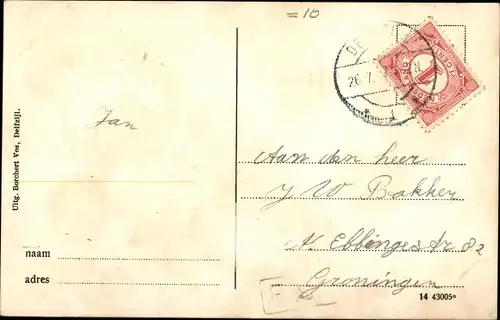 =10
DE
26.7.
N
1
CENT
Jan
Aan den heer
J W Bakker
N. Ebbingestr 82
Groningen
naam
adres
14 43005º
Uitg. Borchert Ves, Delfzijl.